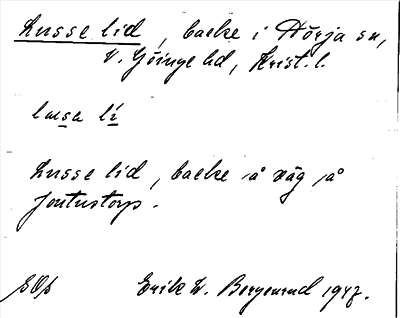 Lusse lid, backe i Hörja sn,
V. Göinge hd, Krist. l.
lusa lí
Lusse lid, backe å väg å
Jontustorp.
Erik W. Bergenrud 1947.